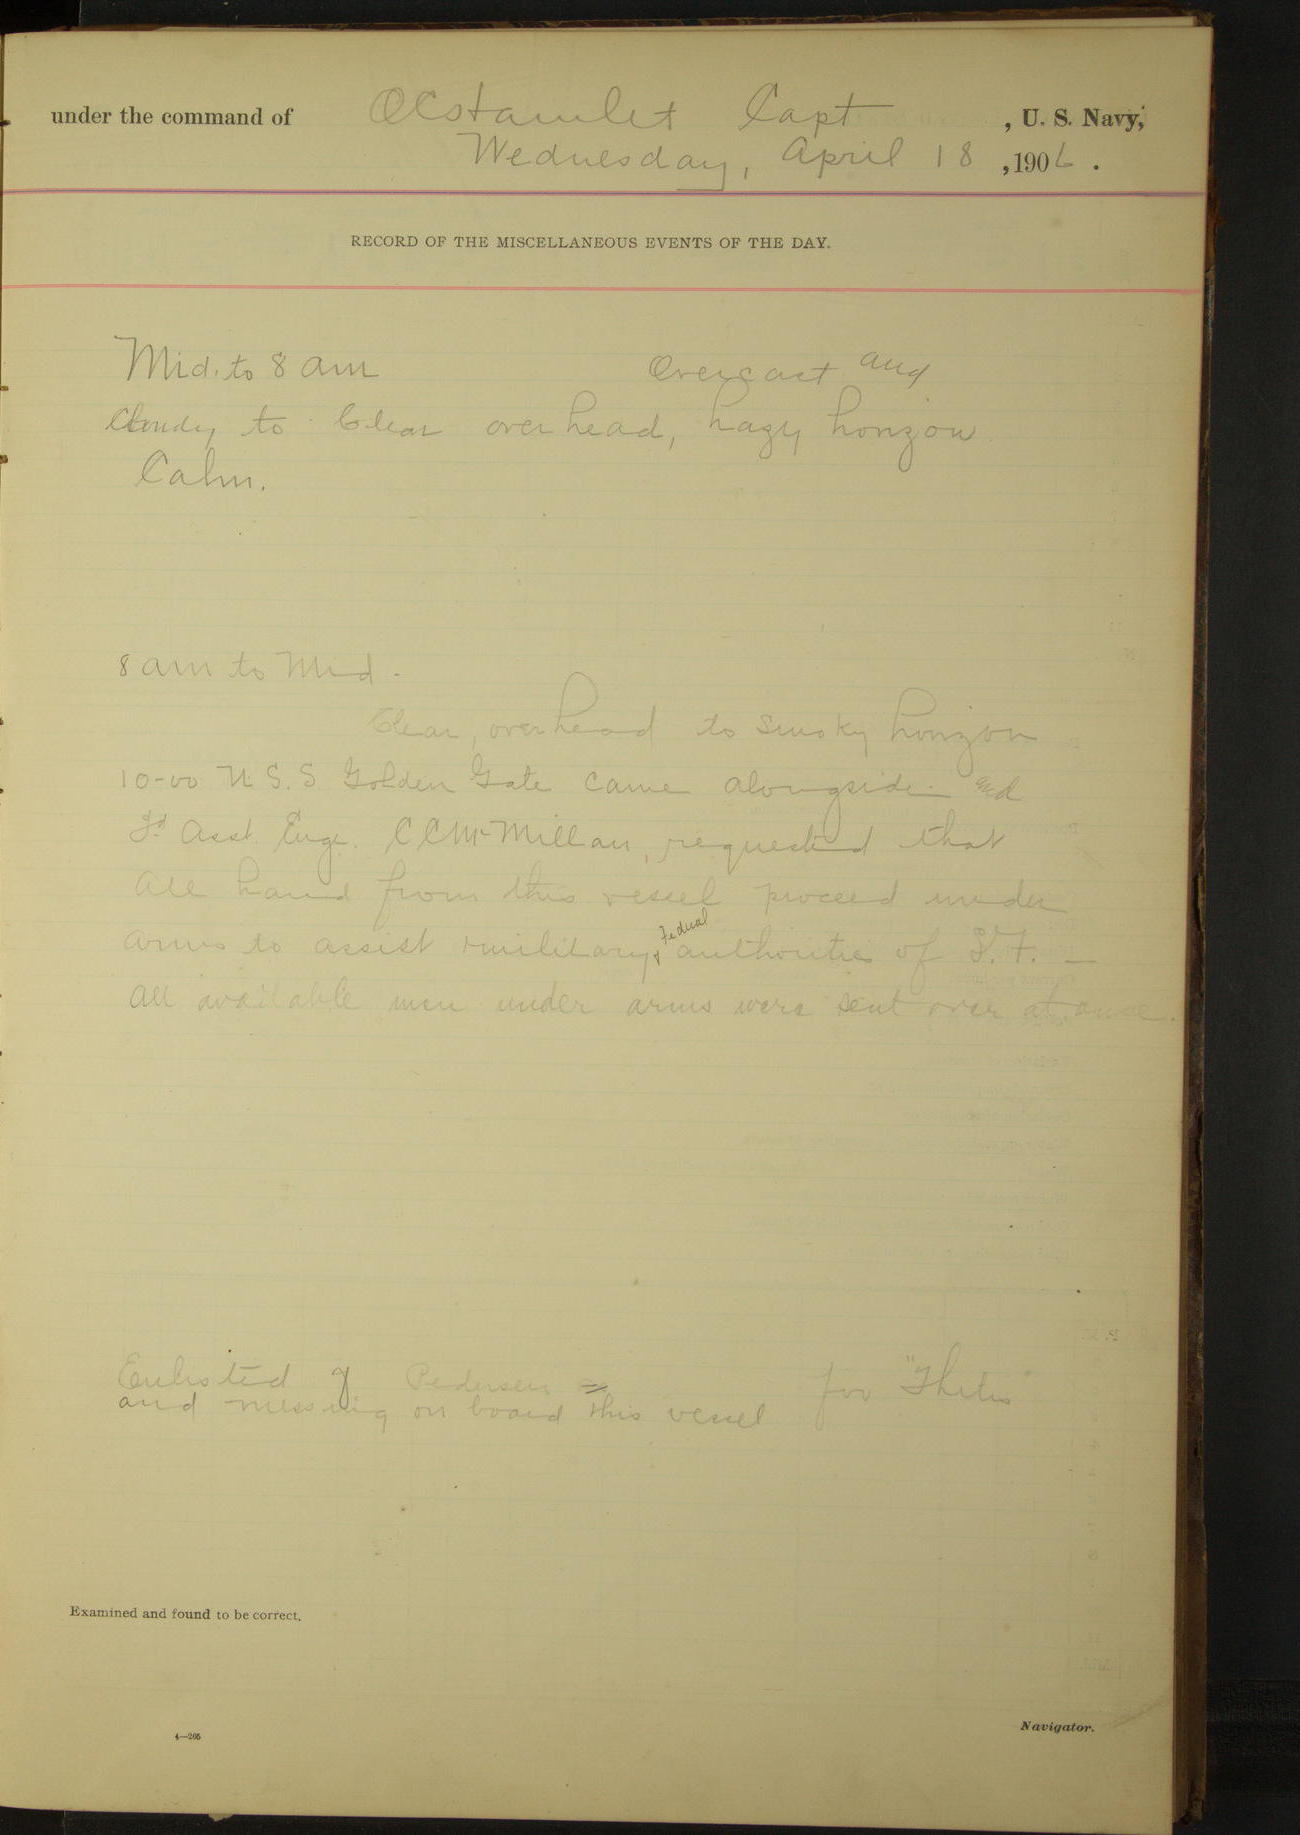 under the command of OCHamlet Capt, U. S. Navy,
Wednesday, April 18, 1906.
RECORD OF THE MISCELLANEOUS EVENTS OF THE DAY.
Mid. to 8 am Overcast and
Cloudy to Clear overhead, hazy horizon
Calm.
8 am to Mid.
Clear, overhead to smoky horizon
10-00 U S. S Golden Gate came alongside and
Asst. Engr. C C McMillan, requested that
all hand from this vessel proceed under
Federal
arms to assist military & authorities of S. F. —
all available men under arms were sent over at once.
Enlisted J Pedersen = for "Thetis"
and messing on board this vessel
Examined and found to be correct.
4—205
Navigator.